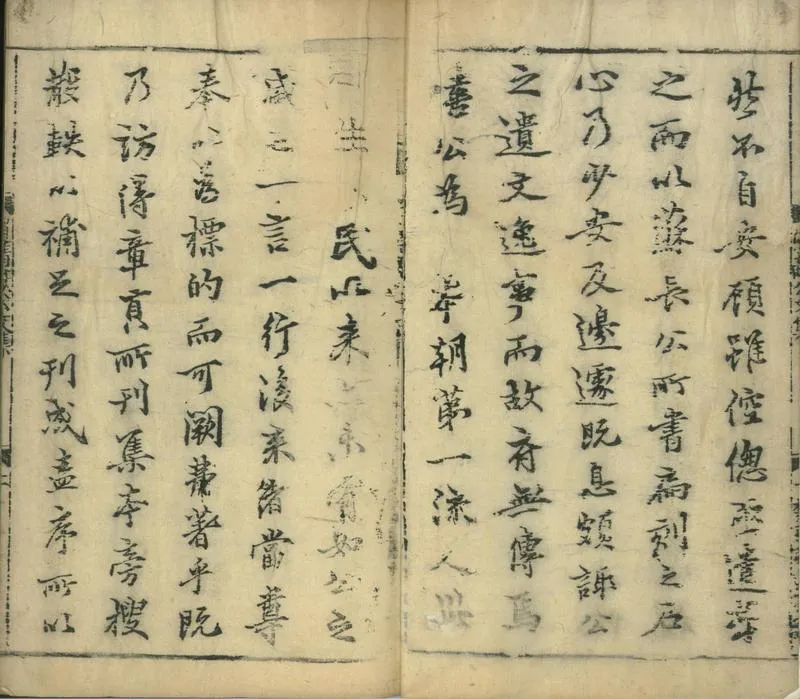 然不自安顧雖倥傯亟遣
之而以蘇長公所書爲刻之石
心乃少安及邊遽既息頗諏公
之遺文逸事而故府無傳焉
喜公爲 本朝第一流人
生民以来未有如公之
盛之一言一行後来者當尊
奉以爲標的而可闕薦著乎既
乃訪得章貢所刊集本旁搜
散軼以補足之刊成盍序所以